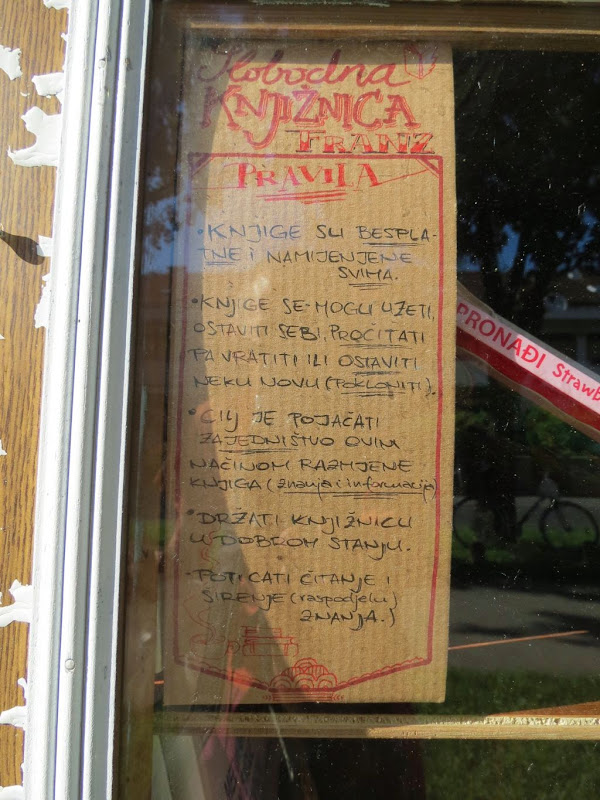 Slobodna
KNJIŽNICA
TRANZ
PRAVILA
• KNJIGE SU BESPLA-
TNE I NAMIJENJENE
SVIMA.
• KNJIGE SE MOGU UZETI,
OSTAVITI SEBI, PROČITATI
PA VRATITI ILI OSTAVITI
NEKU NOVU (POKLONITI).
• CILJ JE POJAČATI
ZAJEDNIŠTVO OVIM
NAČINOM RAZMJENE
KNJIGA (znanja i informacija)
• DRŽATI KNJIŽNICU
U DOBROM STANJU.
• POTICATI ČITANJE I
ŠIRENJE (raspodjelu)
ZNANJA.)
PRONAĐI Strawb